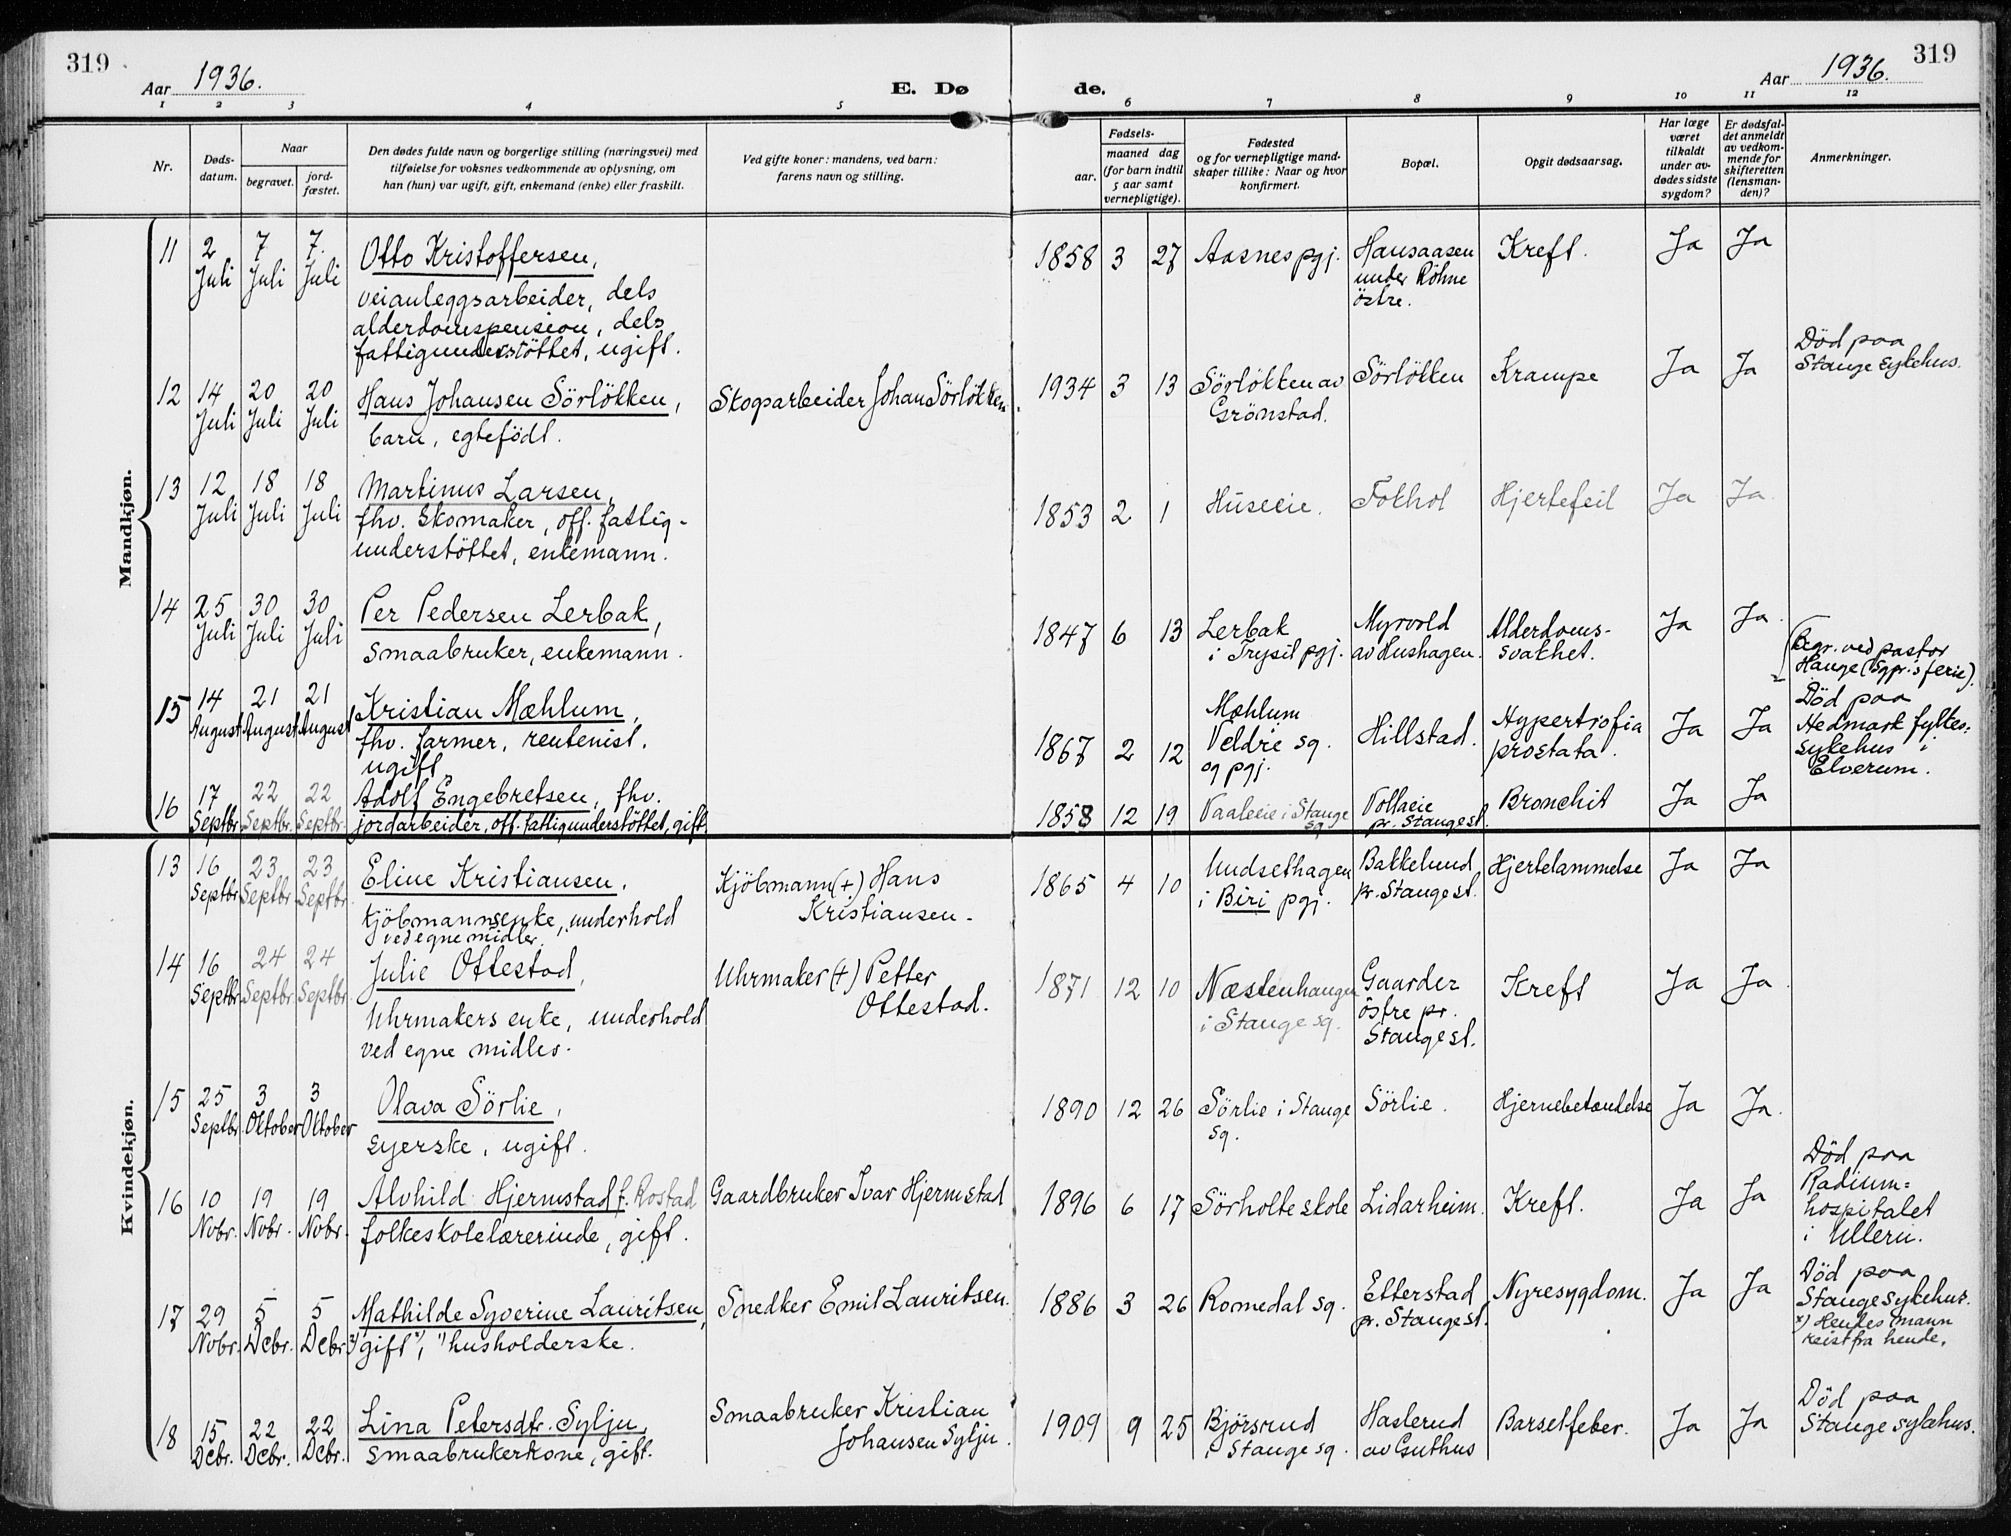 319
Aar 1936.
E. Dø
de.
Aar 1936.
319
1 2 3 4 5 6 7 8 9 10 11 12
Nr.
Døds-
datum.
Naar
begravet.
jord-
fæstet.
Den dødes fulde navn og borgerlige stilling (næringsvei) med
tilføielse for voksnes vedkommende av oplysning, om
han (hun) var ugift, gift, enkemand (enke) eller fraskilt.
Ved gifte koner: mandens, ved barn:
farens navn og stilling.
Fødsels-
aar.
maaned dag
(for barn indtil
5 aar samt
vernepligtige).
Fødested
og for vernepligtige mand-
skaper tillike: Naar og hvor
konfirmert.
Bopæl.
Opgit dødsaarsag.
Har læge
været
tilkaldt
under av-
dødes sidste
sygdom?
Er dødsfal-
det anmeldt
av vedkom-
mende for
skifteretten
(lensman-
den)?
Anmerkninger.
Mandkjøn.
11 2 Juli 7 Juli 7. Juli
Otto Kristoffersen,
veianleggsarbeider, dels
alderdomspension, dels
fattigunderstöttet, ugift.
1858 3 27 Aasnes pgj. Hansaasen
under Röhne
östre.
Kreft. Ja Ja
12 14 Juli 20 Juli 20 Juli
Hans Johansen Sörlökken,
barn, egtefödt.
Skogsarbeider Johan Sörlökken.
1934 3 13 Sörlökken av
Grönstad.
Sörlökken Krampe Ja Ja
Död paa
Stange Sykehus.
13 12 Juli 18 Juli 18 Juli
Martinus Larsen,
fhv. Skomaker, off. fattig-
understöttet, enkemann.
1853 2 1 Huseeie. Fokhol Hjertefeil Ja Ja
14 25 Juli 30 Juli 30 Juli
Per Pedersen Lerbak,
smaabruker, enkemann.
1847 6 13 Lerbak
i Trysil pgj.
Myrvold
av Kushagen.
Alderdoms-
svakhet.
Ja Ja.
(Begr. ved pastor
Hauge (Sgpr.s ferie).
15 14 August 21 August 21 August
Kristian Mæhlum,
fhv. farmer, rentenist.
ugift
1867 2 12 Mæhlum
Veldre sq.
og pgj.
Hillstad. Hypertrofia
prostata.
Ja Ja
Död paa
Hedmark fylkes-
sykehus i
Elverum.
16 17 Septbr. 22 Septbr. 22 Septbr.
Adolf Engebretsen, fhv.
jordarbeider, off. fattigunderstöttet, gift.
1858 12 19 Vaaleeie i Stange
sq.
Vollaeie
pr. Stange st.
Bronchit Ja Ja
Kvindekjøn.
13 16 Septbr 23 Septbr 23 Septbr.
Eline Kristiansen.
Kjöbmannsenke, underhold
ved egne midler.
Kjöbmann (+) Hans
Kristiansen.
1865 4 10 Undsethagen
i Biri pgj.
Bakkelund
pr. Stange st.
Hjertelammelse Ja Ja
14 16 Septbr. 24 Septbr. 24 Septbr.
Julie Ottestad,
Uhrmakers enke, underhold
ved egne midler.
Uhrmaker (+) Petter
Ottestad.
1871 12 10 Næstenhaugen
i Stange sq.
Gaarder
östre pr.
Stange st.
Kreft Ja Ja
15 25 Septbr. 3 Oktober 3 Oktober
Olava Sörlie,
eyerske, ugift.
1890 12 26 Sörlie i Stange
sq.
Sörlie. Hjernebetændelse Ja Ja.
16 10 Novbr. 19 Novbr. 19 Novbr.
Alvhild Hjermstad f. Rostad
folkeskolelærerinde, gift.
Gaardbruker Ivar Hjermstad
1896 6 17 Sörholte skole Lidarheim. Kreft. Ja Ja
Död paa
Radium=
hospitalet
i Ullern.
17 29 Novbr. 5 Dcbr. 5 Dcbr.
Mathilde Syverine Lauritsen,
x) gift, husholderske.
Snedker Emil Lauritsen.
1886 3 26 Romedal sq. Etterstad
pr. Stange st.
Nyresygdom. Ja Ja
Död paa
Stange sykehus.
x) Hendes mann
reist fra hende.
18 15 Dcbr. 22 Dcbr. 22 Dcbr.
Lina Petersdtr. Sylju,
smaabrukerkone, gift.
Smaabruker Kristian
Johansen Sylju.
1909 9 25 Björsrud
i Stange sq.
Haslerud
av Guthus
Barselfeber. Ja Ja
Död paa
Stange sykehus.